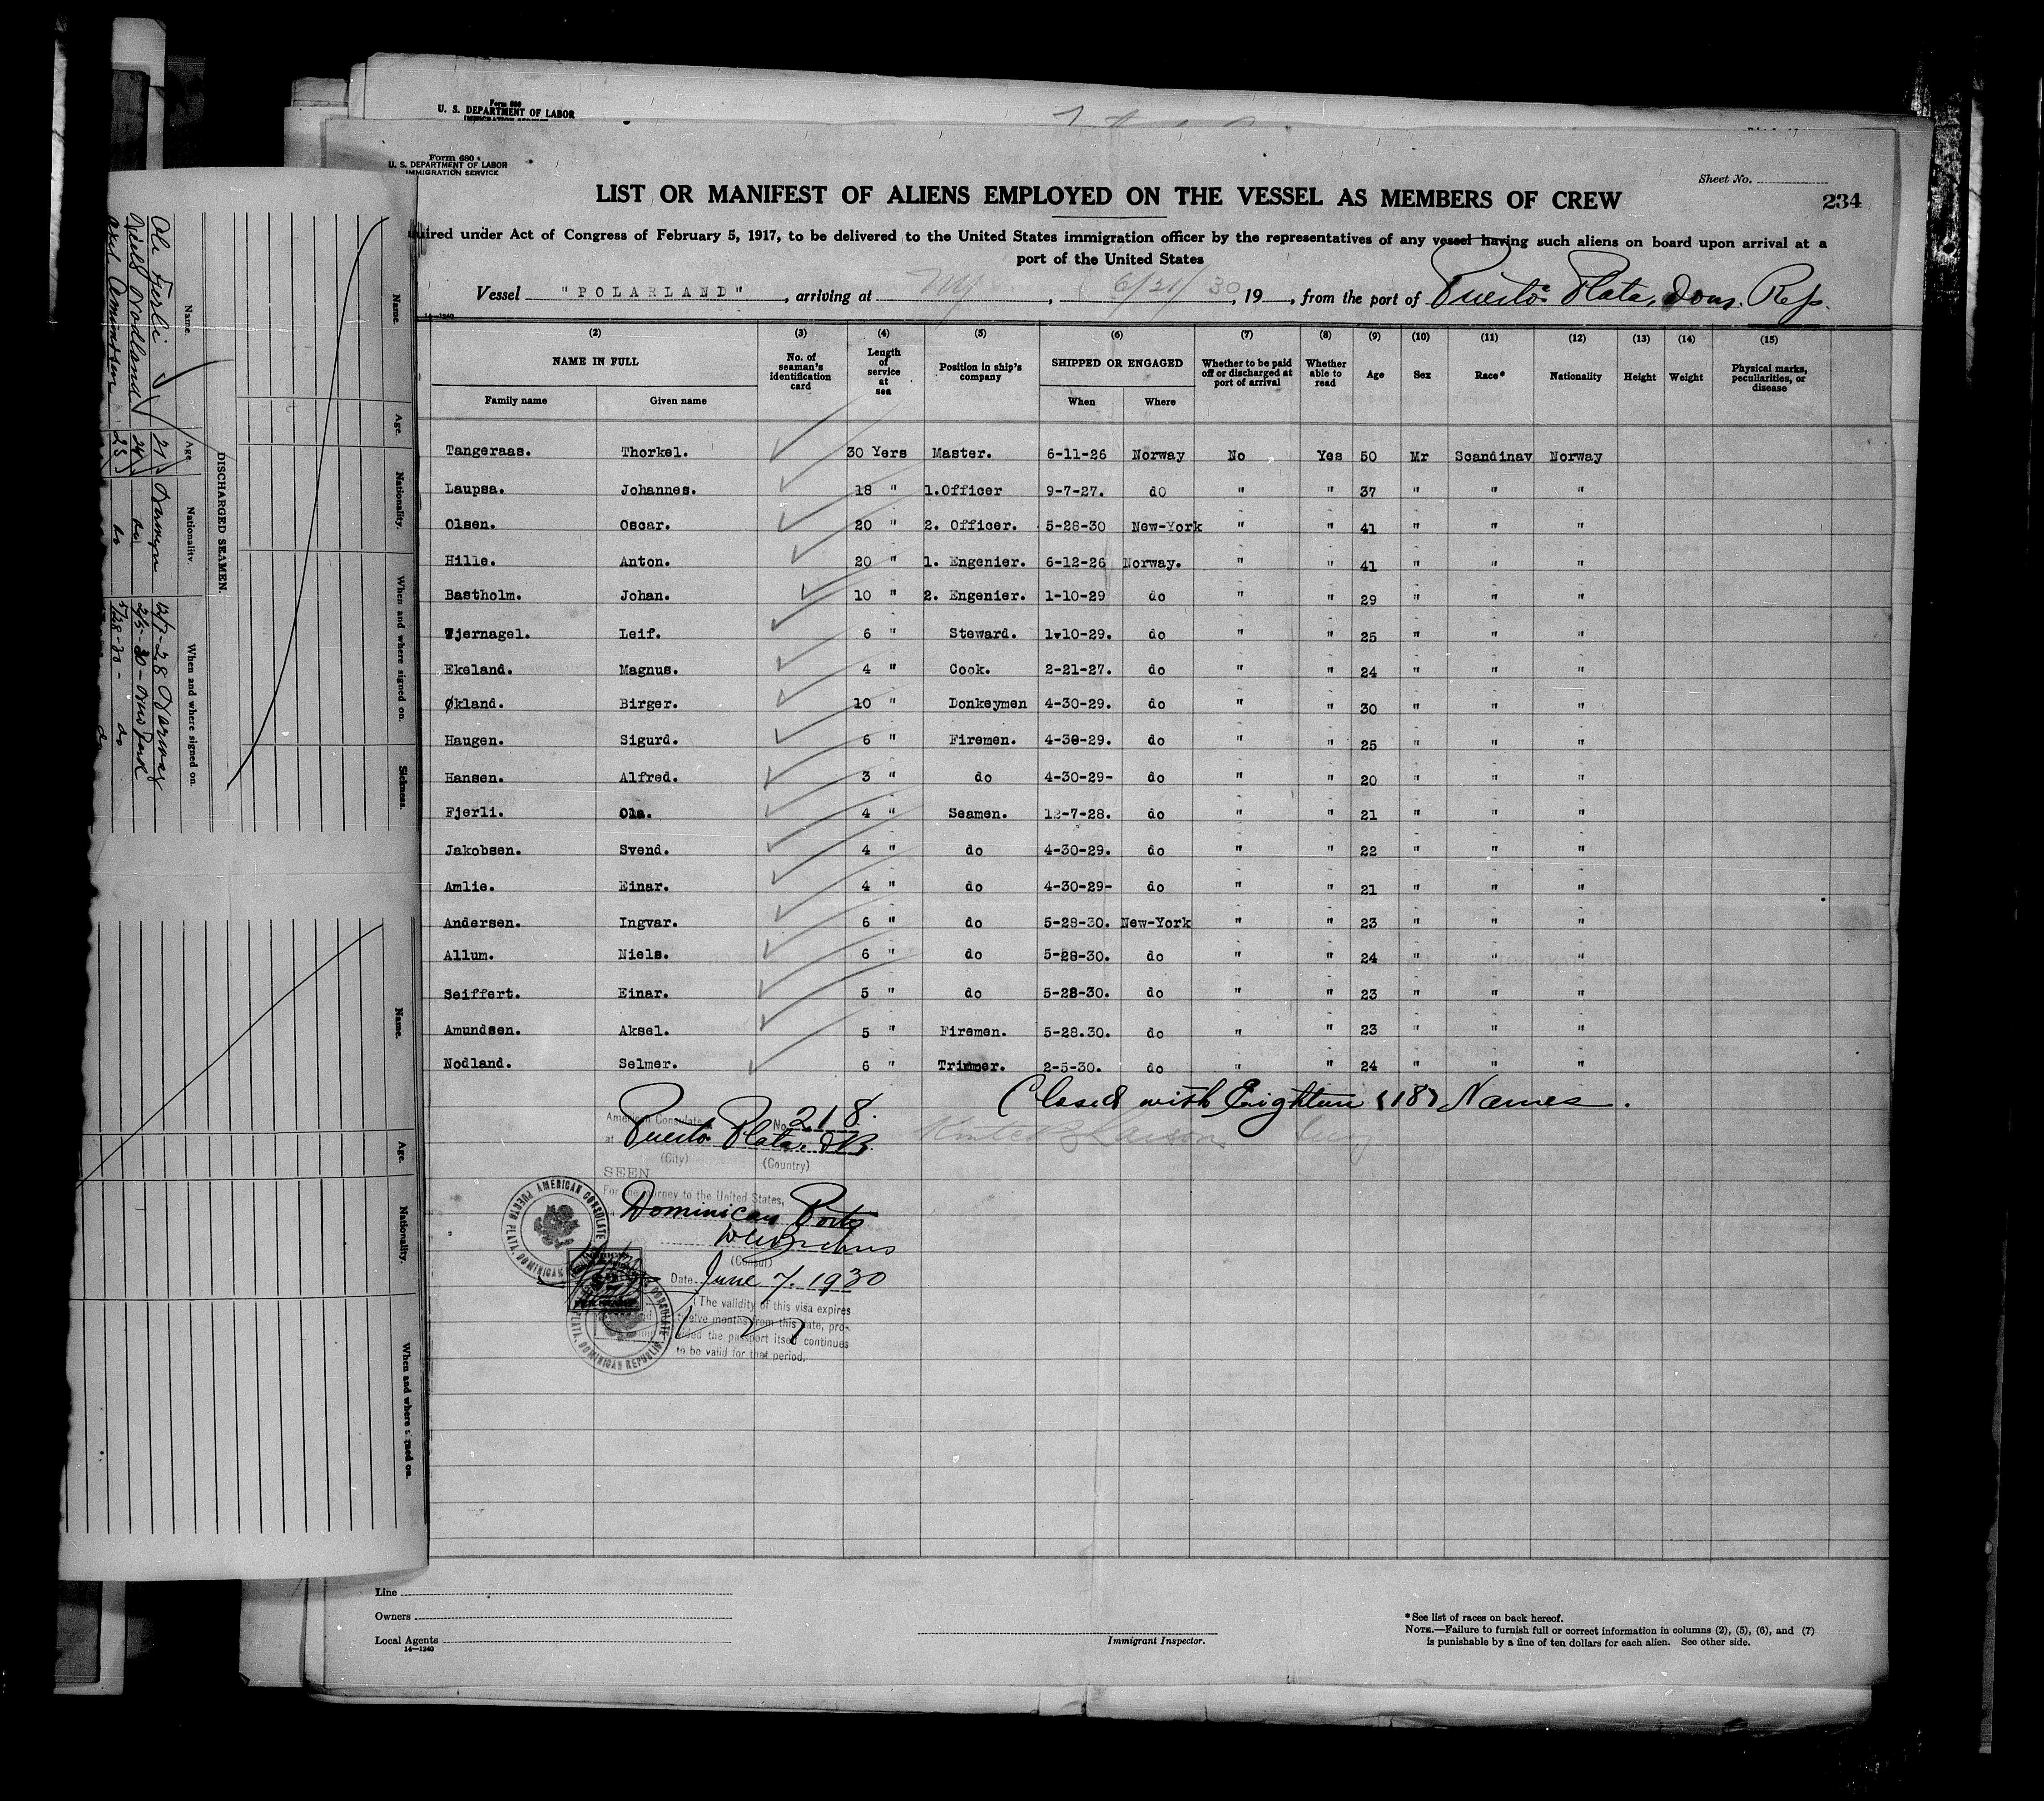 Form 686
U. S. DEPARTMENT OF LABOR
IMMIGRATION SERVICE
Form 680
U. S. DEPARTMENT OF LABOR
IMMIGRATION SERVICE
Sheet No.
LIST OR MANIFEST OF ALIENS EMPLOYED ON THE VESSEL AS MEMBERS OF CREW
234
uired under Act of Congress of February 5, 1917, to be delivered to the United States immigration officer by the representatives of any vessel having such aliens on board upon arrival at a
port of the United States
Vessel "POLARLAND", arriving at NY, 6/21/30, 19, from the port of Puerto Plata, Dom. Rep.
14—1240
(2) (3) (4) (5) (6) (7) (8) (9) (10) (11) (12) (13) (14) (15)
NAME IN FULL No. of seaman's identification card Length of service at sea Position in ship's company SHIPPED OR ENGAGED Whether to be paid off or discharged at port of arrival Whether able to read Age Sex Race* Nationality Height Weight Physical marks, peculiarities, or disease
Family name Given name When Where
Tangeraas. Thorkel. 30 Yers Master. 6-11-26 Norway No Yes 50 Mr Scandinav Norway
Laupsa. Johannes. 18 " 1.Officer 9-7-27. dO " " 37 " " "
Olsen. Oscar. 20 " 2. Officer. 5-28-30 New-York " " 41 " " "
Hille. Anton. 20 " 1. Engenier. 6-12-26 Norway. " " 41 " " "
Bastholm. Johan. 10 " 2. Engenier. 1-10-29 do " " 29 " " "
Tjernagel. Leif. 6 " Steward. 1-10-29. do " " 25 " " "
Ekeland. Magnus. 4 " Cook. 2-21-27. do " " 24 " " "
Økland. Birger. 10 " Donkeymen 4-30-29. do " " 30 " " "
Haugen. Sigurd. 6 " Firemen. 4-30-29. do " " 25 " " "
Hansen. Alfred. 3 " do 4-30-29- do " " 20 " " "
Fjerli. Ole. 4 " Seamen. 12-7-28. do " " 21 " " "
Jakobsen. Svend. 4 " do 4-30-29. do " " 22 " " "
Amlie. Einar. 4 " do 4-30-29- do " " 21 " " "
Andersen. Ingvar. 6 " do 5-28-30. New-York " " 23 " " "
Allum. Niels. 6 " do 5-28-30. do " " 24 " " "
Seiffert. Einar. 5 " do 5-28-30. do " " 23 " " "
Amundsen. Aksel. 5 " Firemen. 5-28.30. do " " 23 " " "
Nodland. Selmer. 6 " Trimmer. 2-5-30. do " " 24 " " "
Closed with Eighteen (18) Names.
American Consulate No. 218.
at Puerto Plata, D.R.
(City) (Country)
SEEN
For the journey to the United States,
Dominican Ports
(Consul)
Date June 7. 1930
The validity of this visa expires
twelve months from this date, pro-
vided the passport itself continues
to be valid for that period.
AMERICAN CONSULATE
PUERTO PLATA, DOMINICAN
CONSULATE
PLATA, DOMINICAN REPUBLIC
Line
Owners
Local Agents
14—1240
Immigrant Inspector.
*See list of races on back hereof.
NOTE.—Failure to furnish full or correct information in columns (2), (5), (6), and (7)
is punishable by a fine of ten dollars for each alien. See other side.
Name. Age. Nationality. When and where signed on. Sickness.
DISCHARGED SEAMEN.
Name. Age. Nationality. When and where signed on.
Ole Fjerli 21 Norwegn 12/7-28 Norway
Niels Nodland 24 do 2/5-30- New York
Axel Amundsen 23 do 5/28-30- do
Name. Age. Nationality. When and where signed on.